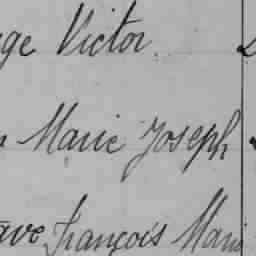 ge Victor
Marie Joseph
ave François Marie